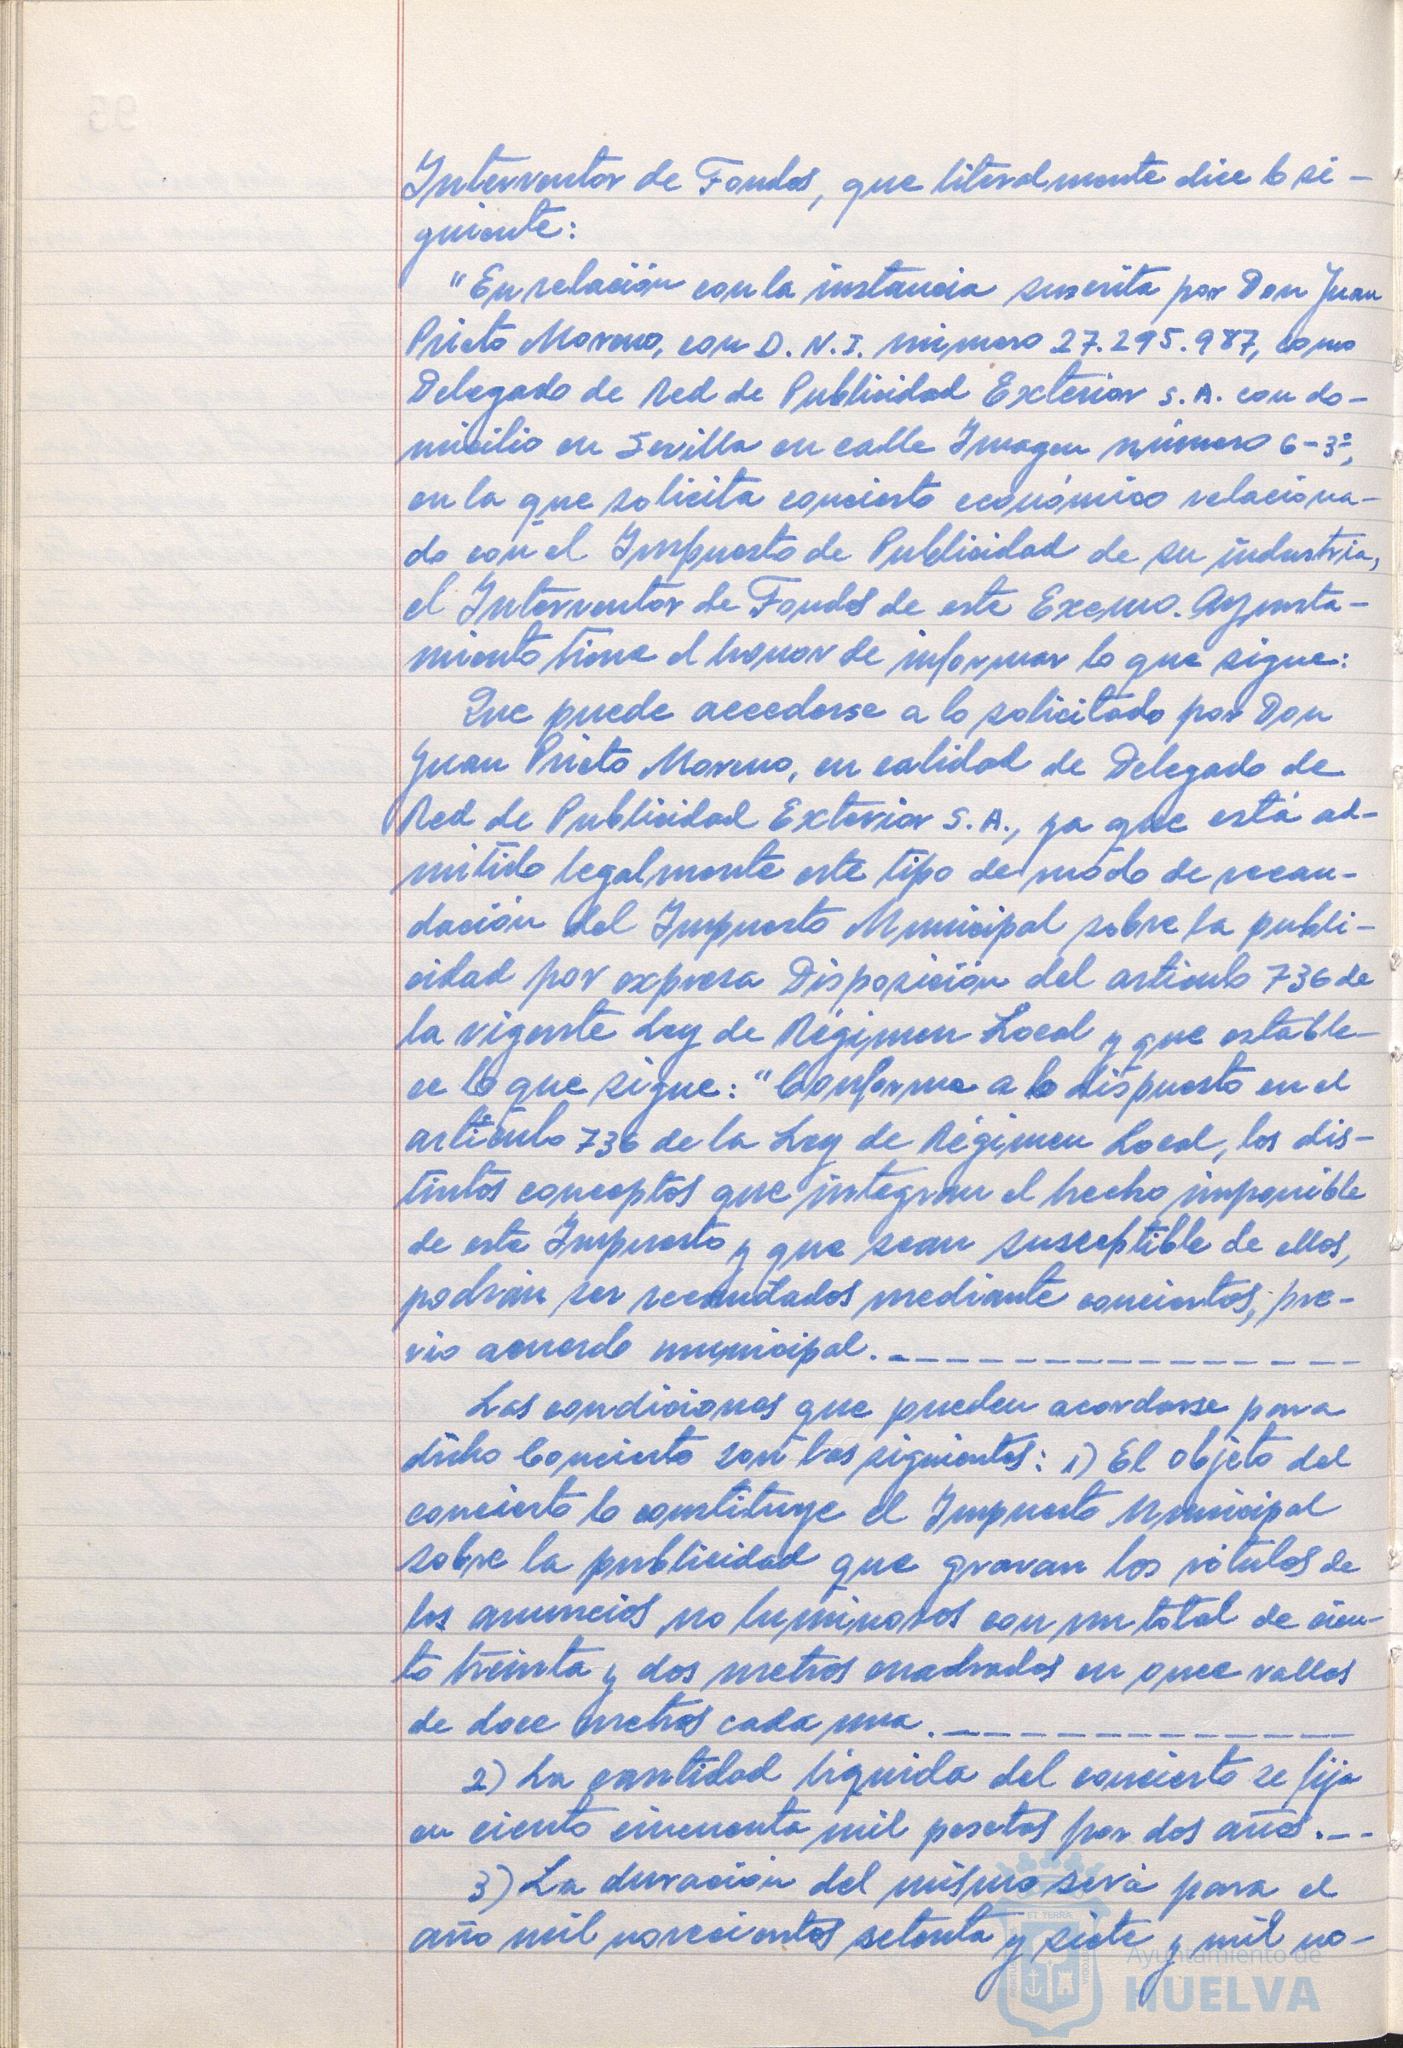 Interventor de Fondos, que literalmente dice lo si-
guiente:
"En relación con la instancia suscrita por Don Juan
Prieto Moreno, con D.N.I. número 27.295.987, como
Delegado de Red de Publicidad Exterior S.A. con do-
micilio en Sevilla en calle Imagen número 6-3º,
en la que solicita concierto económico relaciona-
do con el Impuesto de Publicidad de su industria,
el Interventor de Fondos de este Excmo. Ayunta-
miento tiene el honor de informar lo que sigue:
Que puede accederse a lo solicitado por Don
Juan Prieto Moreno, en calidad de Delegado de
Red de Publicidad Exterior S.A., ya que está ad-
mitido legalmente este tipo de modo de recau-
dación del Impuesto Municipal sobre la publi-
cidad por expresa Disposición del articulo 736 de
la vigente Ley de Régimen Local y que estable-
ce lo que sigue: "Conforme a lo dispuesto en el
artículo 736 de la Ley de Régimen Local, los dis-
tintos conceptos que integran el hecho imponible
de este Impuesto y que sean susceptible de ellos,
podrán ser recaudados mediante conciertos, pre-
vio acuerdo municipal.
Las condiciones que pueden acordarse para
dicho Concierto son las siguientes: 1) El objeto del
concierto lo constituye el Impuesto Municipal
sobre la publicidad que gravan los rótulos de
los anuncios no luminosos con un total de cien-
to treinta y dos metros cuadrados en once vallas
de doce metros cada una.
2) La cantidad líquida del concierto se fija
en ciento cincuenta mil pesetas por dos años.
3) La duración del mismo será para el
año mil novecientos setenta y siete y mil no-
Ayuntamiento de
HUELVA